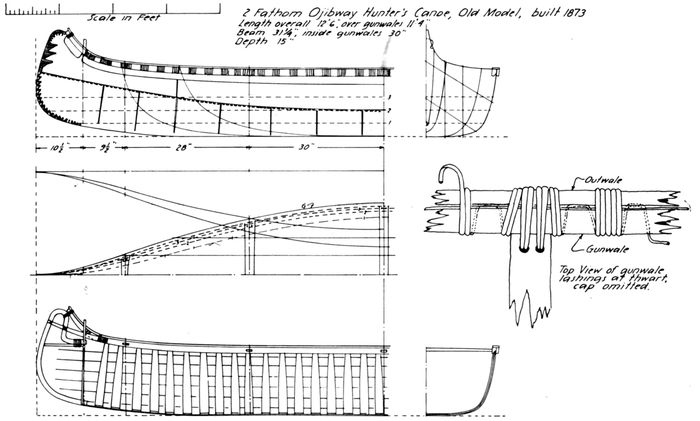 Scale in Feet
2 Fathom Ojibway Hunter's Canoe, Old Model, built 1873
Length overall 12'6", over gunwales 11'4"
Beam 31¼", inside gunwales 30"
Depth 15"
3
2
1
10½" 9½" 28" 30"
Outwale
Gunwale
Top View of gunwale
lashings at thwart,
cap omitted.